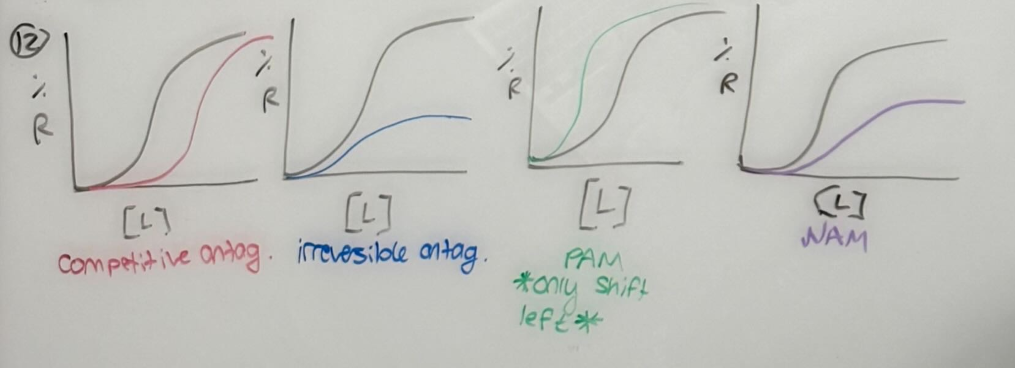 12
% R
% R
% R
% R
[L]
[L]
[L]
[L]
competitive antag.
irrevesible antag.
PAM
*only shift
left*
NAM